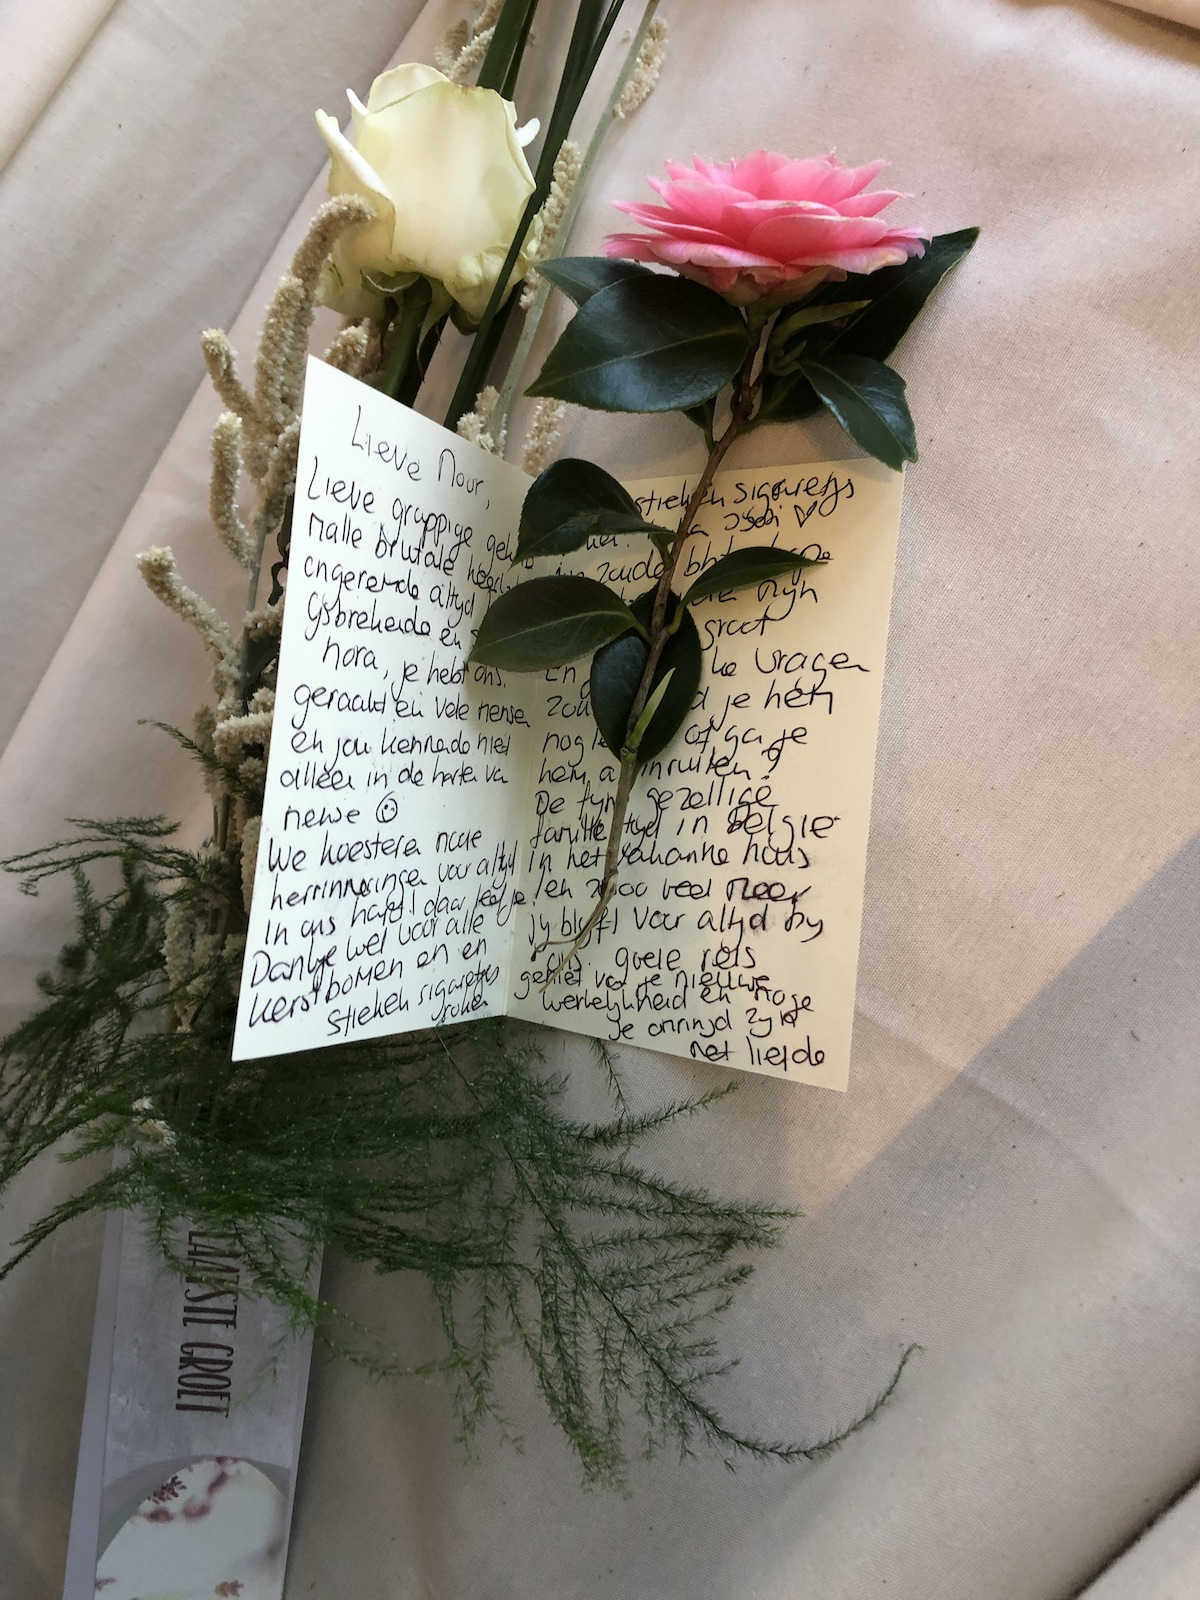 Lieve Nour,
Lieve grappige
Malle brutale
ongeremde altyd
Gsbrekende en
Nora, je hebt ons.
geraakt en vele mensen
en jou kennende niet
alléén in de harten va
mense ☺
We koesteren mooie
herrinneringen voor altyd
in ons hart! daar leef je!
Dankje wel voor alle
kerstbomen en en
stiekem sigaretjes
roken
stiekem sigaretjes
♡
zoude
mijn
groot
En vragen
zou je hem
nog of ga je
hem inruilen?
De fyne gezellige
familie tyd in België
in het vakantie huis
en zoooo veel meer
jy blyft voor altyd by
ons. goeie reis
geniet van je nieuwe
werkelijkheid en moge
je omringd zyn
met liefde
LAATSTE GROET